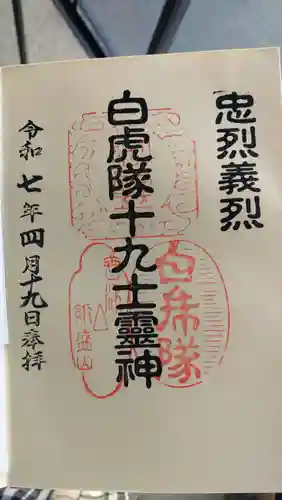 忠烈義烈
白虎隊十九士靈神
令和七年四月十九日奉拝
白虎隊
飯盛山